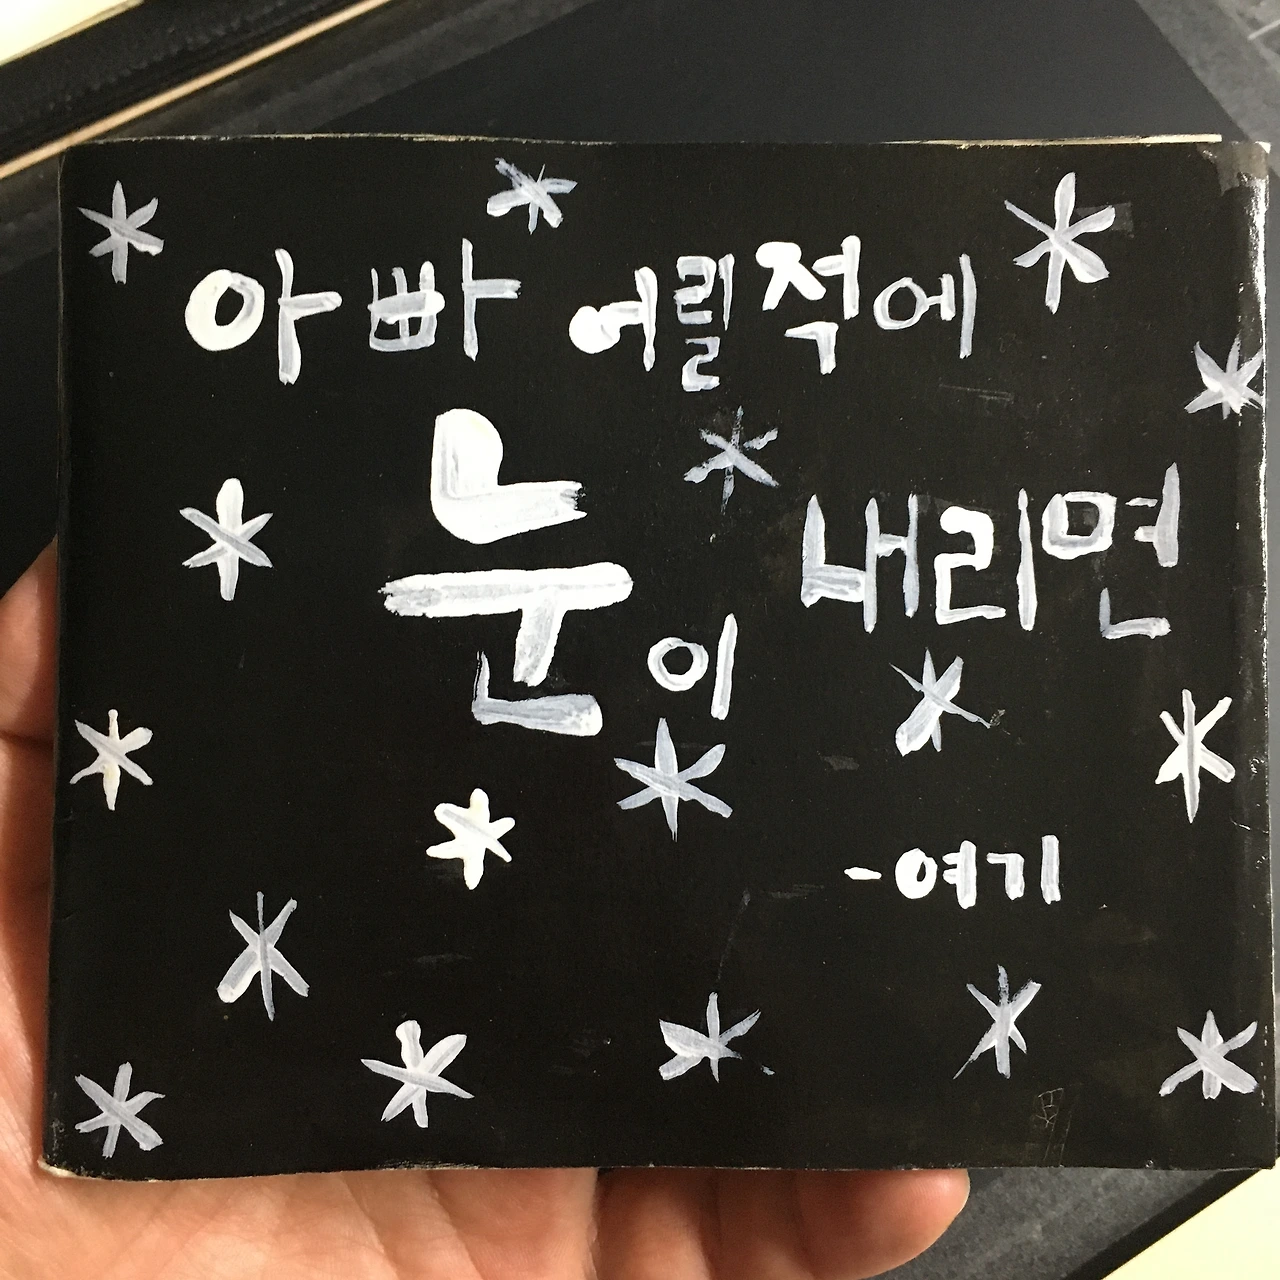 아빠 어릴적에
눈이 내리면
-여기